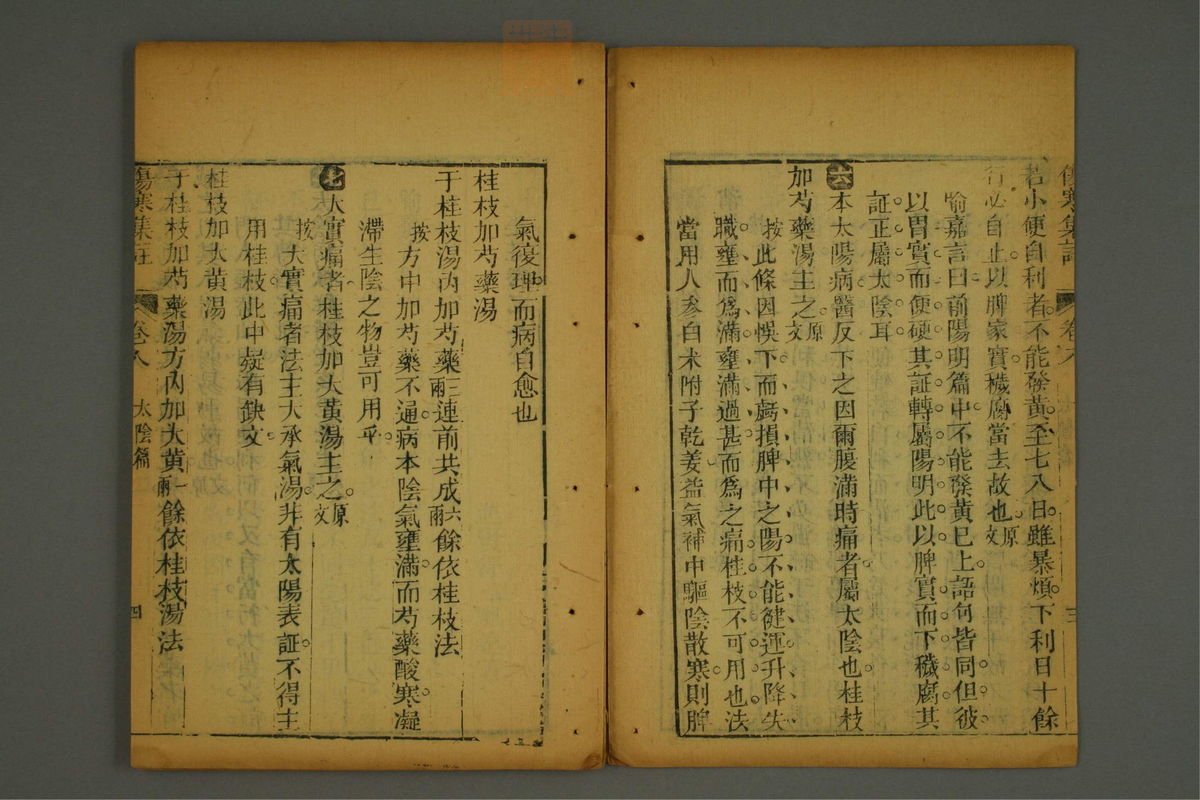 傷寒集註
卷八
三
若小便自利者不能發黃至七八日雖暴煩下利日十餘
行必自止以脾家實穢腐當去故也原文
喻嘉言曰前陽明篇中不能發黃已上語句皆同但彼
以胃實而便硬其証轉屬陽明此以脾實而下穢腐其
証正屬太陰耳
六本太陽病醫反下之因爾腹滿時痛者屬太陰也桂枝
加芍藥湯主之原文
按此條因悞下而虧損脾中之陽不能健運升降失
職壅而爲滿壅滿過甚而爲之痛桂枝不可用也法
當用人參白朮附子乾姜益氣補中驅陰散寒則脾
氣復理而病自愈也
桂枝加芍藥湯
于桂枝湯內加芍藥三兩連前共成六兩餘依桂枝法
按方中加芍藥不通病本陰氣壅滿而芍藥酸寒凝
滯生陰之物豈可用乎
七大實痛者桂枝加大黃湯主之原文
按大實痛者法主大承氣湯非有太陽表証不得主
用桂枝此中疑有缺文
桂枝加大黃湯
于桂枝加芍藥湯方內加大黃一兩餘依桂枝湯法
傷寒集註
卷八
太陰篇
四